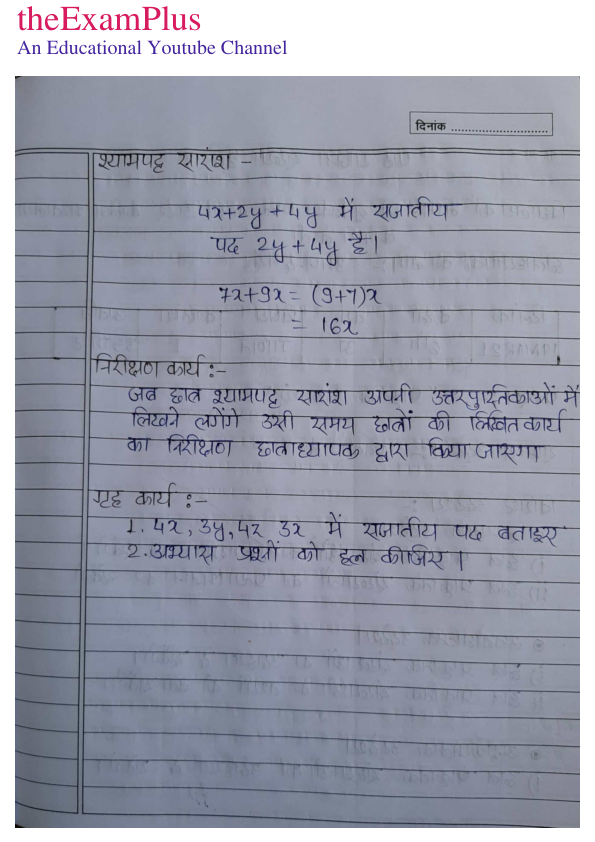 theExamPlus
An Educational Youtube Channel
दिनांक ..............................
श्यामपट्ट सारांश –
4x+2y+4y में सजातीय
पद 2y+4y है।
7x+9x = (9+7)x
= 16x
निरीक्षण कार्य :-
जब छात्र श्यामपट्ट सारांश अपनी उत्तरपुस्तिकाओं में
लिखने लगेंगे उसी समय छात्रों की लिखित कार्य
का निरीक्षण छात्राध्यापक द्वारा किया जाएगा
गृह कार्य :-
1. 4x, 3y, 4z 3x में सजातीय पद बताइए
2. अभ्यास प्रश्नों को हल कीजिए ।